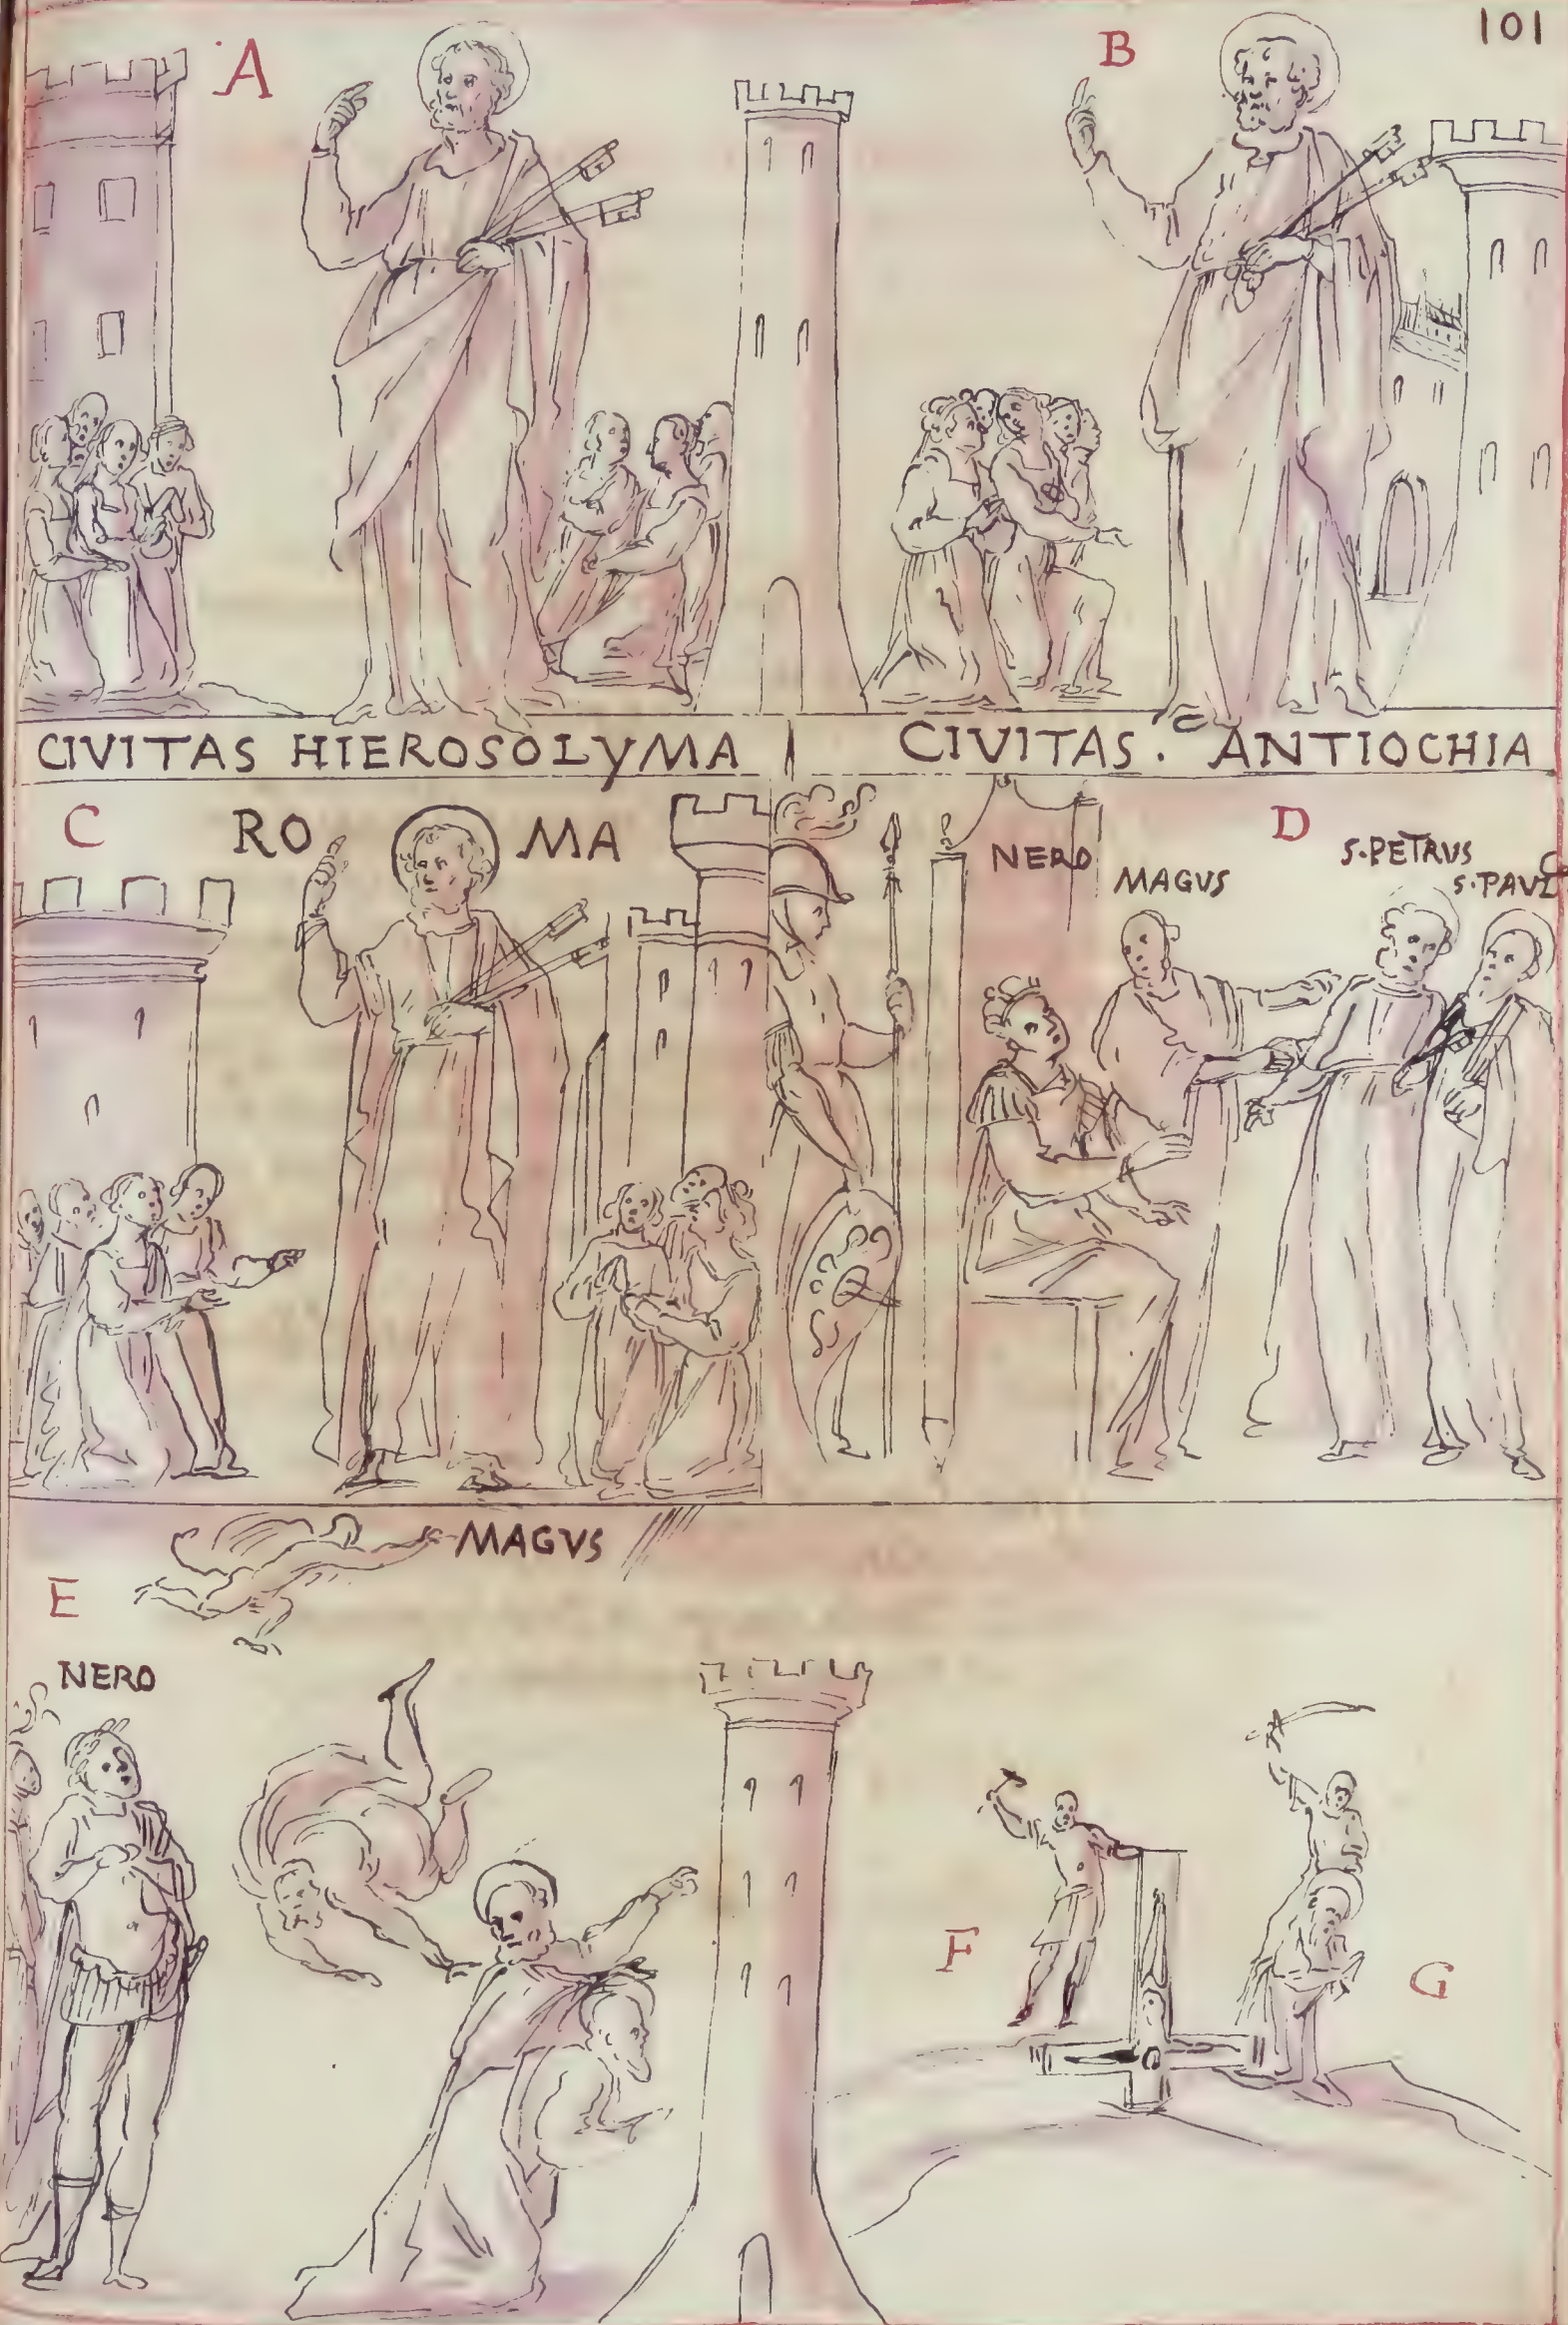 101
A
B
CIVITAS HIEROSOLYMA
CIVITAS. ANTIOCHIA
C
RO MA
D
NERO
MAGVS
S. PETRVS
S. PAVL
MAGVS
E
NERO
F
G